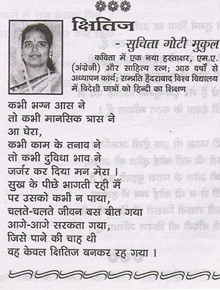 क्षितिज
- सुचिता गोटी मुकुल
कविता में एक नया हस्ताक्षर, एम.ए.
(अंग्रेजी) और साहित्य रत्न; आठ वर्षों से
अध्यापन कार्य; सम्प्रति हैदराबाद विश्व विद्यालय
में विदेशी छात्रों को हिन्दी का शिक्षण
कभी भग्न आस ने
तो कभी मानसिक त्रास ने
आ घेरा,
कभी काम के तनाव ने
तो कभी दुविधा भाव ने
जर्जर कर दिया मन मेरा !
सुख के पीछे भागती रही मैं
पर उसको कभी न पाया,
चलते-चलते जीवन बस बीत गया
आगे-आगे सरकता गया,
जिसे पाने की चाह थी
वह केवल क्षितिज बनकर रह गया ।